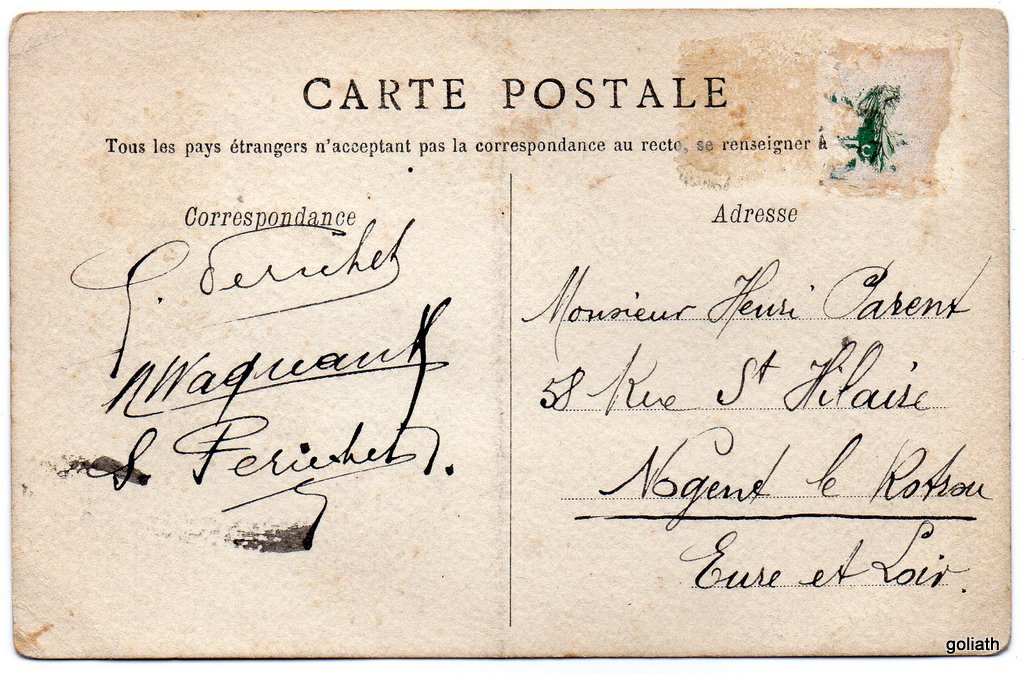 CARTE POSTALE
Tous les pays étrangers n'acceptant pas la correspondance au recto, se renseigner à
Correspondance
G. Perichet
Waquant
S. Perichet.
Adresse
Monsieur Henri Parent
58 Rue St Hilaire
Nogent le Rotrou
Eure et Loir.
goliath